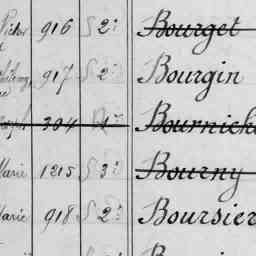 916 S 2° Bourget
917 S 2° Bourgin
304 Bourniche
Marie 1215 S 3° Bourny
Marie 918 S 2° Boursier